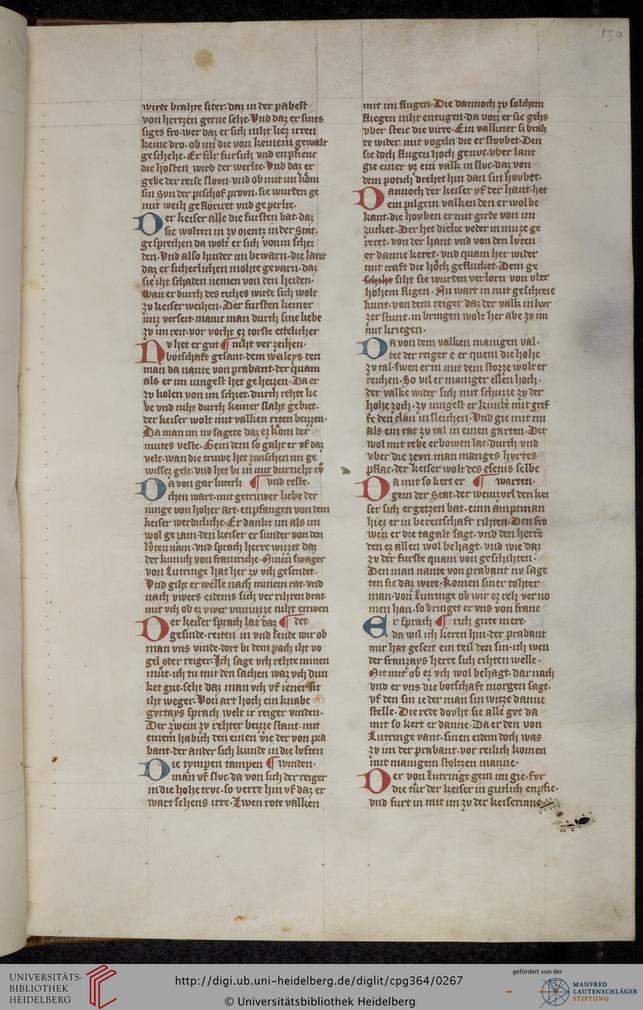 130
wirde brahte sider· daz in der pabest
von hertzen gerne sehe· Vnd daz er sines
siges fro· wer daz er sich niht liez irren
keine dro· ob im die von keinem gewalt
geschehe· Er fur fursich vnd enpfienc
die hosten wird der werlte· Vnd daz er
gebe der reise
sin svn der pischof
mit weih gefloriert vnd geperlte·
Der keiser alle die fursten bat· daz
sie wolten in zv orientz in der stat·
gesprechen da wolt er sich von im schei
den· Vnd also hinder im bewarn· die lant
daz er sicherlichen mohte gevarn· daz
sie iht schaden nemen von den heiden·
wan er durch des riches wirde sich wolt
zv keiser weihen· Der fursten keiner
imz verseit· manic man durch sine liebe
zv im reit· vor vorht er torste ettelicher
Nv het er gut ¶ niht ver zeihen·
botschaft gesant· dem waleys den
man da nante von prabant· der quam
als er im iungest het geheizen· Da er
zv kolen von im schiet· durch rehte lie
be vnd niht durch keiner slaht gebiet·
der keiser wolt mit valken riten beizzen·
Da man im nv sagete daz er kom der
mutes veste· Gein dem so gaht er vf daz
velt· wan die truwe het zwischen im ge
wissez gelt· vnd het bi in mit
Da von gar luterlich ¶ vnd reste·
chen wart· mit getruwer liebe der
iunge von hoher art· enpfangen von dem
keiser werdicliche· Er dankt im als im
wol gezam· den keiser er sunder von den
luten nam· vnd sprach herre wizzet daz
der kunich von francriche· Minen swager
von Lutringe hat her zv vch gesendet·
Vnd giht er welle nach minem rat· vnd
nach vwers eidems sich verrihten drat·
mit vch ob ez vwer vnmuzze niht enwen
Der keiser sprach lat daz ¶ det·
gesinde· reiten in vnd sende wir ob
man vns vinde· dort bi dem pach iht vo
gel oder reiger· Ich sage vch rehte minen
mut· ich tu mit den sachen waz vch dun
ket gut· seht daz man vch vf iener sit
iht weger· Von art hoch ein knabe
gurtays sprach welt ir reiger vinden·
Der zwein zv rehter beizze stant· mit
einem habich den einen vie der von pra
bant· der ander sich kunde in die luften
Die tympen tampen ¶ winden·
man vf sluc· da von sich der reiger
in die hohe truc· so verre hin vf daz er
wart sehens irre· Zwen rote valken
mit im flugen· Die dannoch zv solchem
fliegen niht entugen· da von er sie gehs
vber steic die virre· Ein valkner si brah
te wider mit vogeln die er stovbet· Den
sie doch flugen hoch genuc· vber lant
gie einer vz ein valk in sluc· daz von
dem povch drehet hin dan sin hovbet·
Dannoch der keiser vf der hant het
ein pilgrin valken den er wol be
kant· die hovben er mit girde von im
zucket· Der het dicke veder in muze ge
reret· von der hant vnd von den luten
er danne keret· vnd quam her wider
mit craft die hoch geflucket· Dem ge
schiht siht sie wurden verlorn von vber
hohem flugen· Nu wart in mit geschreie
kunt· von dem reiger daz der valk in kur
zer stunt· in bringen wolt her abe zv im
mit kriegen·
Da von dem valken manigen val·
tet der reiger e er quem die hohe
zv tal· swen er in mit dem stozze wolt er
reichen· So vil er maniger ellen hoch·
der valke wider sich mit schuzze zv der
hohe zoch· zv iungest er kunde mit grif
fe den clan in sleichen· Vnd gie mit im
als ein rat zv tal in einen garten· Der
wol mit rebe erbowen lac· durch vnd
vber die zevn man manges hyrtes
pflac· der keiser wolt des esenis selbe
Da mit so kert er ¶ warten·
gein der stat· der weinzurl den kei
ser sich ergetzen bat· einn amptman
hiez er in bereitschaft rihten· Den fro
wen er die tagalt sagt· vnd den herren
den ez allen wol behagt· vnd wie daz
zv der furste quam von geschihten·
Den man nante von prabant nv sage
ten sie daz mere· Komen siner tohter
man· von Lutringe ob wir ez reh ver no
men han· so bringet er vns von franc
Er sprach ¶ rich gute mere·
da wil ich keren hin· der prabant
nur hat gesert ein teil den sin· ich wen
der franzays herre sich rihten welle·
Nit mir ob ez vch wol behagt· dar nach
vnd er vns die botschaft morgen sagt·
vf den sin ie der man sin witze danne
stelle· Die rede dovht sie alle gvt da
mit so kert er danne· Da er den von
Lutringe vant· sinen eidem doch was
zv im der prabant· vor reilich komen
mit manigem stoltzen manne·
Der von Lutringe gein im gie· fvr
die tur der keiser in gutlich enpfie·
vnd furt in mit im zv der keiserinne·
UNIVERSITÄTS-
BIBLIOTHEK
HEIDELBERG
http://digi.ub.uni-heidelberg.de/diglit/cpg364/0267
© Universitätsbibliothek Heidelberg
gefördert von der
MANFRED
LAUTENSCHLÄGER
STIFTUNG